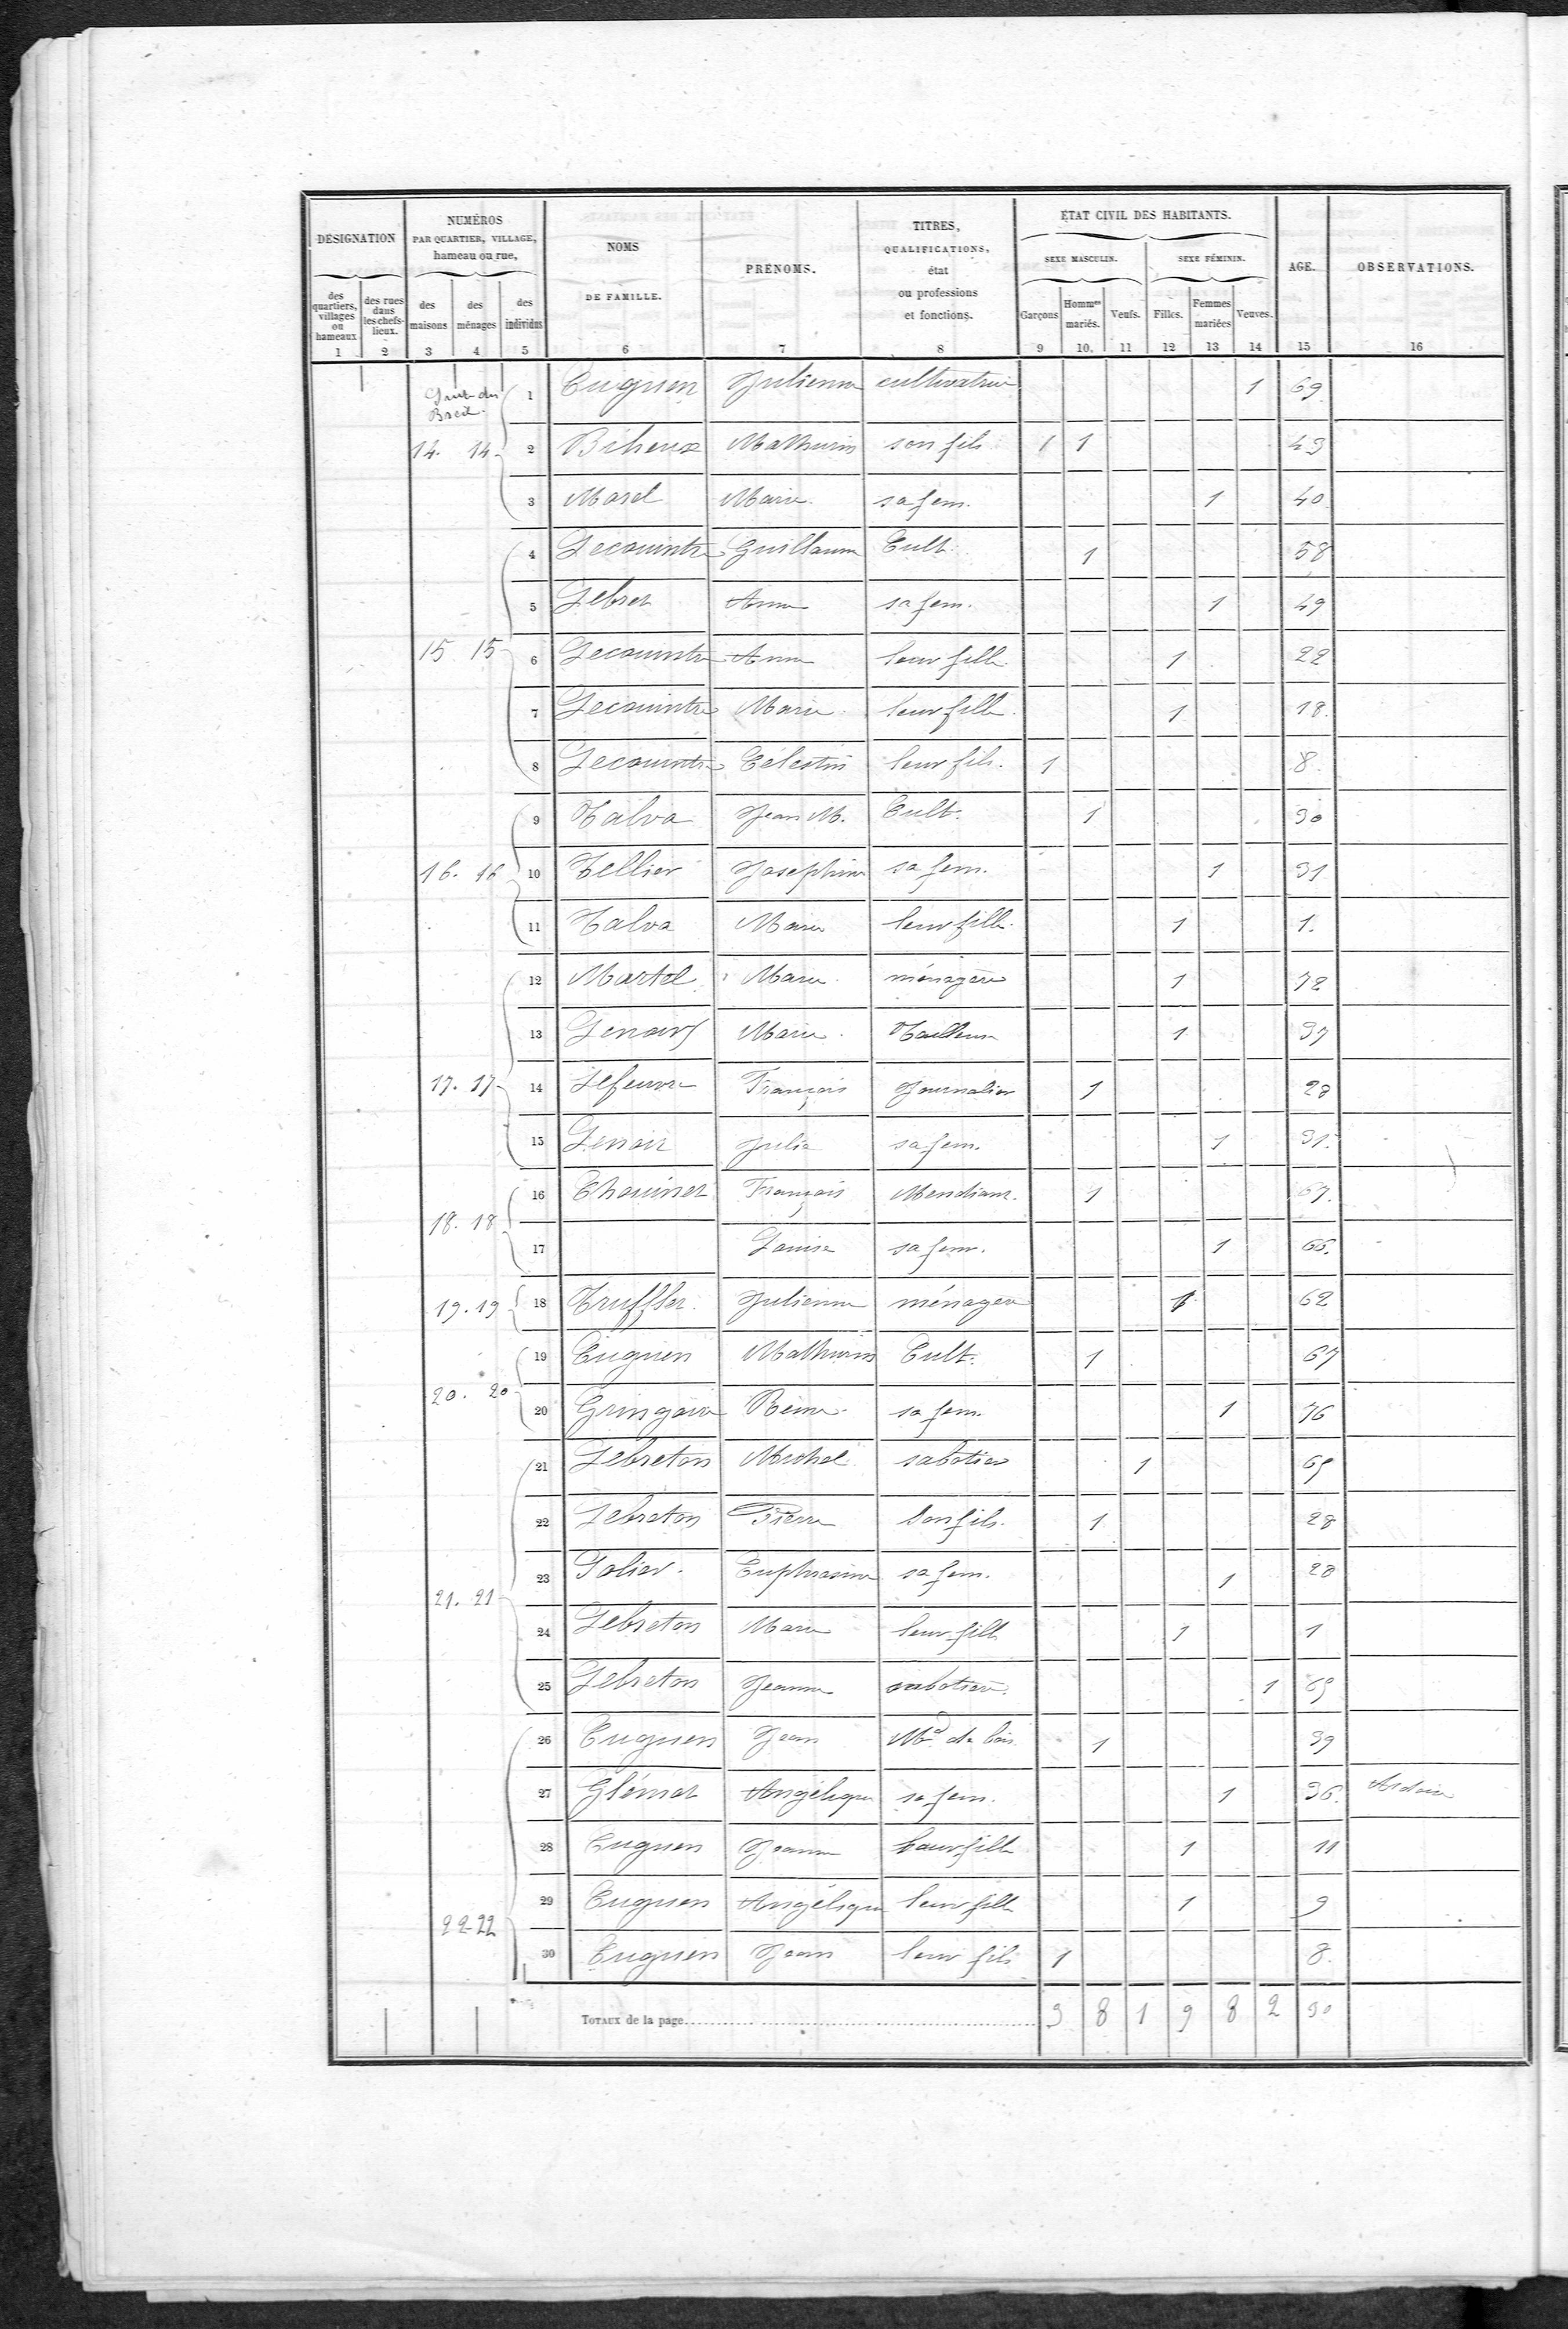 DESIGNATION
des quartiers, villages ou hameaux
des rues dans les chefs-lieux.
NUMÉROS
PAR QUARTIER, VILLAGE,
hameau ou rue,
des maisons
des ménages
des individus
NOMS
DE FAMILLE.
PRÉNOMS.
TITRES,
QUALIFICATIONS,
état
ou professions
et fonctions.
ÉTAT CIVIL DES HABITANTS.
SEXE MASCULIN.
SEXE FÉMININ.
Garçons
Hommes mariés.
Veufs.
Filles.
Femmes mariées
Veuves.
AGE.
OBSERVATIONS.
1 2 3 4 5 6 7 8 9 10 11 12 13 14 15 16
Breil
1 Cuguen Julienne cultivatrice 1 69
14. 14 2 Béheux Mathurin son fils 1 1 43
3 Marie sa fem. 1 40
4 Lecointre Guillaume Cult. 1 58
5 Lebret Anne sa fem. 1 49
15 15 6 Lecointre Anne leur fille 1 22
7 Lecointre Marie leur fille 1 18
8 Lecointre Célestin leur fils. 1 8
9 Talva Jean M. Cult. 1 30
16. 16 10 Tellier Josephine sa fem. 1 31
11 Talva Marie leur fille 1 1.
12 Martel Marie ménagère 1 72
13 Lenoir Marie Tailleuse 1 37
17. 17 14 Lefeuvre François Journalier 1 28
15 Lenoir Julie sa fem. 1 31.
16 Chouinet François Mendiant. 1 67.
18. 18 17 Louise sa fem. 1 66.
19. 19 18 Truffler Julienne ménagère 1 62
19 Cuguen Mathurin Cult. 1 67
20. 20 20 Reine sa fem. 1 76
21 Lebreton Michel sabotier 1 69
22 Lebreton Pierre Son fils. 1 28
21. 21 23 Euphrasine sa fem. 1 28
24 Lebreton Marie leur fille 1 1
25 Lebreton Jeanne sabotière. 1 69
26 Cuguen Jean Md de bois 1 39
27 Glémot Angélique sa fem. 1 36.
28 Cuguen Jeanne Leur fille 1 11
29 Cuguen Angélique leur fille 1 9
22-22 30 Cuguen Jean leur fils 1 8.
TOTAUX de la page 3 8 1 9 8 2 30